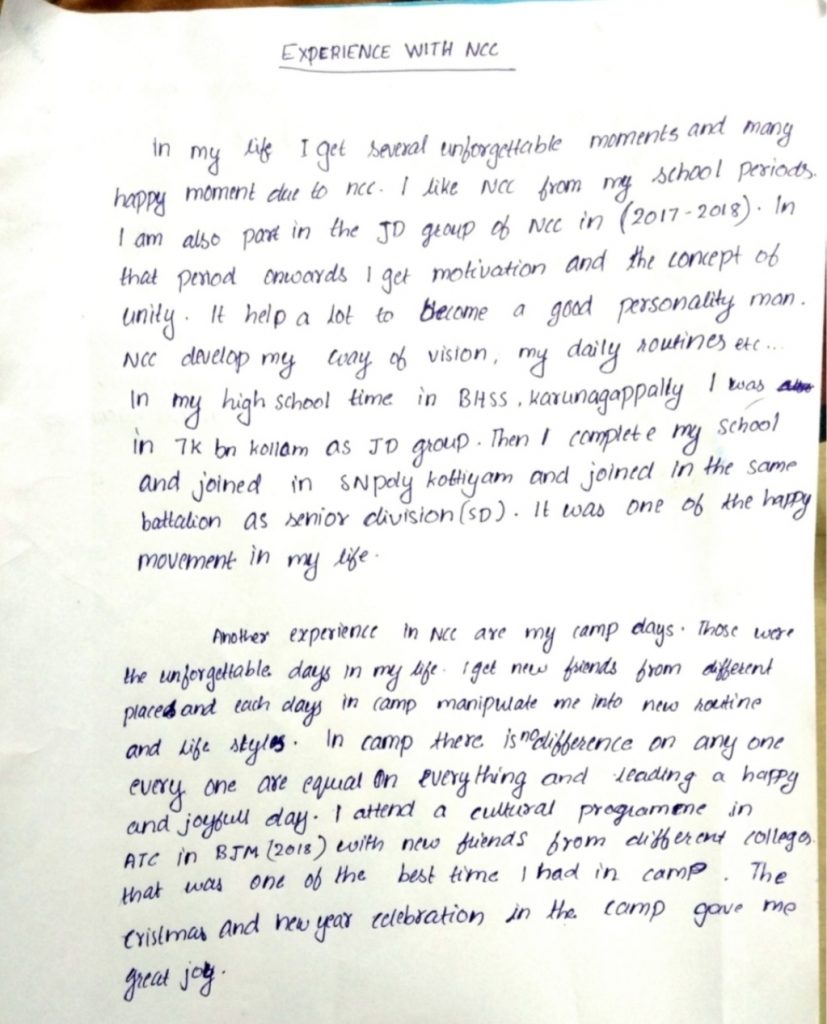 EXPERIENCE WITH NCC
In my life I get several unforgettable moments and many
happy moment due to ncc. I like NCC from my school periods.
I am also part in the JD group of NCC in (2017-2018). In
that period onwards I get motivation and the concept of
unity. It help a lot to become a good personality man.
NCC develop my way of vision, my daily routines etc...
In my high school time in BHSS, Karunagappally I was
in 7K bn kollam as JD group. Then I complete my school
and joined in SNpoly kottiyam and joined in the same
battalion as senior division (SD). It was one of the happy
movement in my life.
Another experience in NCC are my camp days. Those were
the unforgettable days in my life. I get new friends from different
places and each days in camp manipulate me into new routine
and life styles. In camp there is no difference on any one
every one are equal on everything and leading a happy
and joyfull day. I attend a cultural programme in
ATC in BJM (2018) with new friends from different colleges.
that was one of the best time I had in camp. The
cristmas and new year celebration in the camp gave me
great joy.